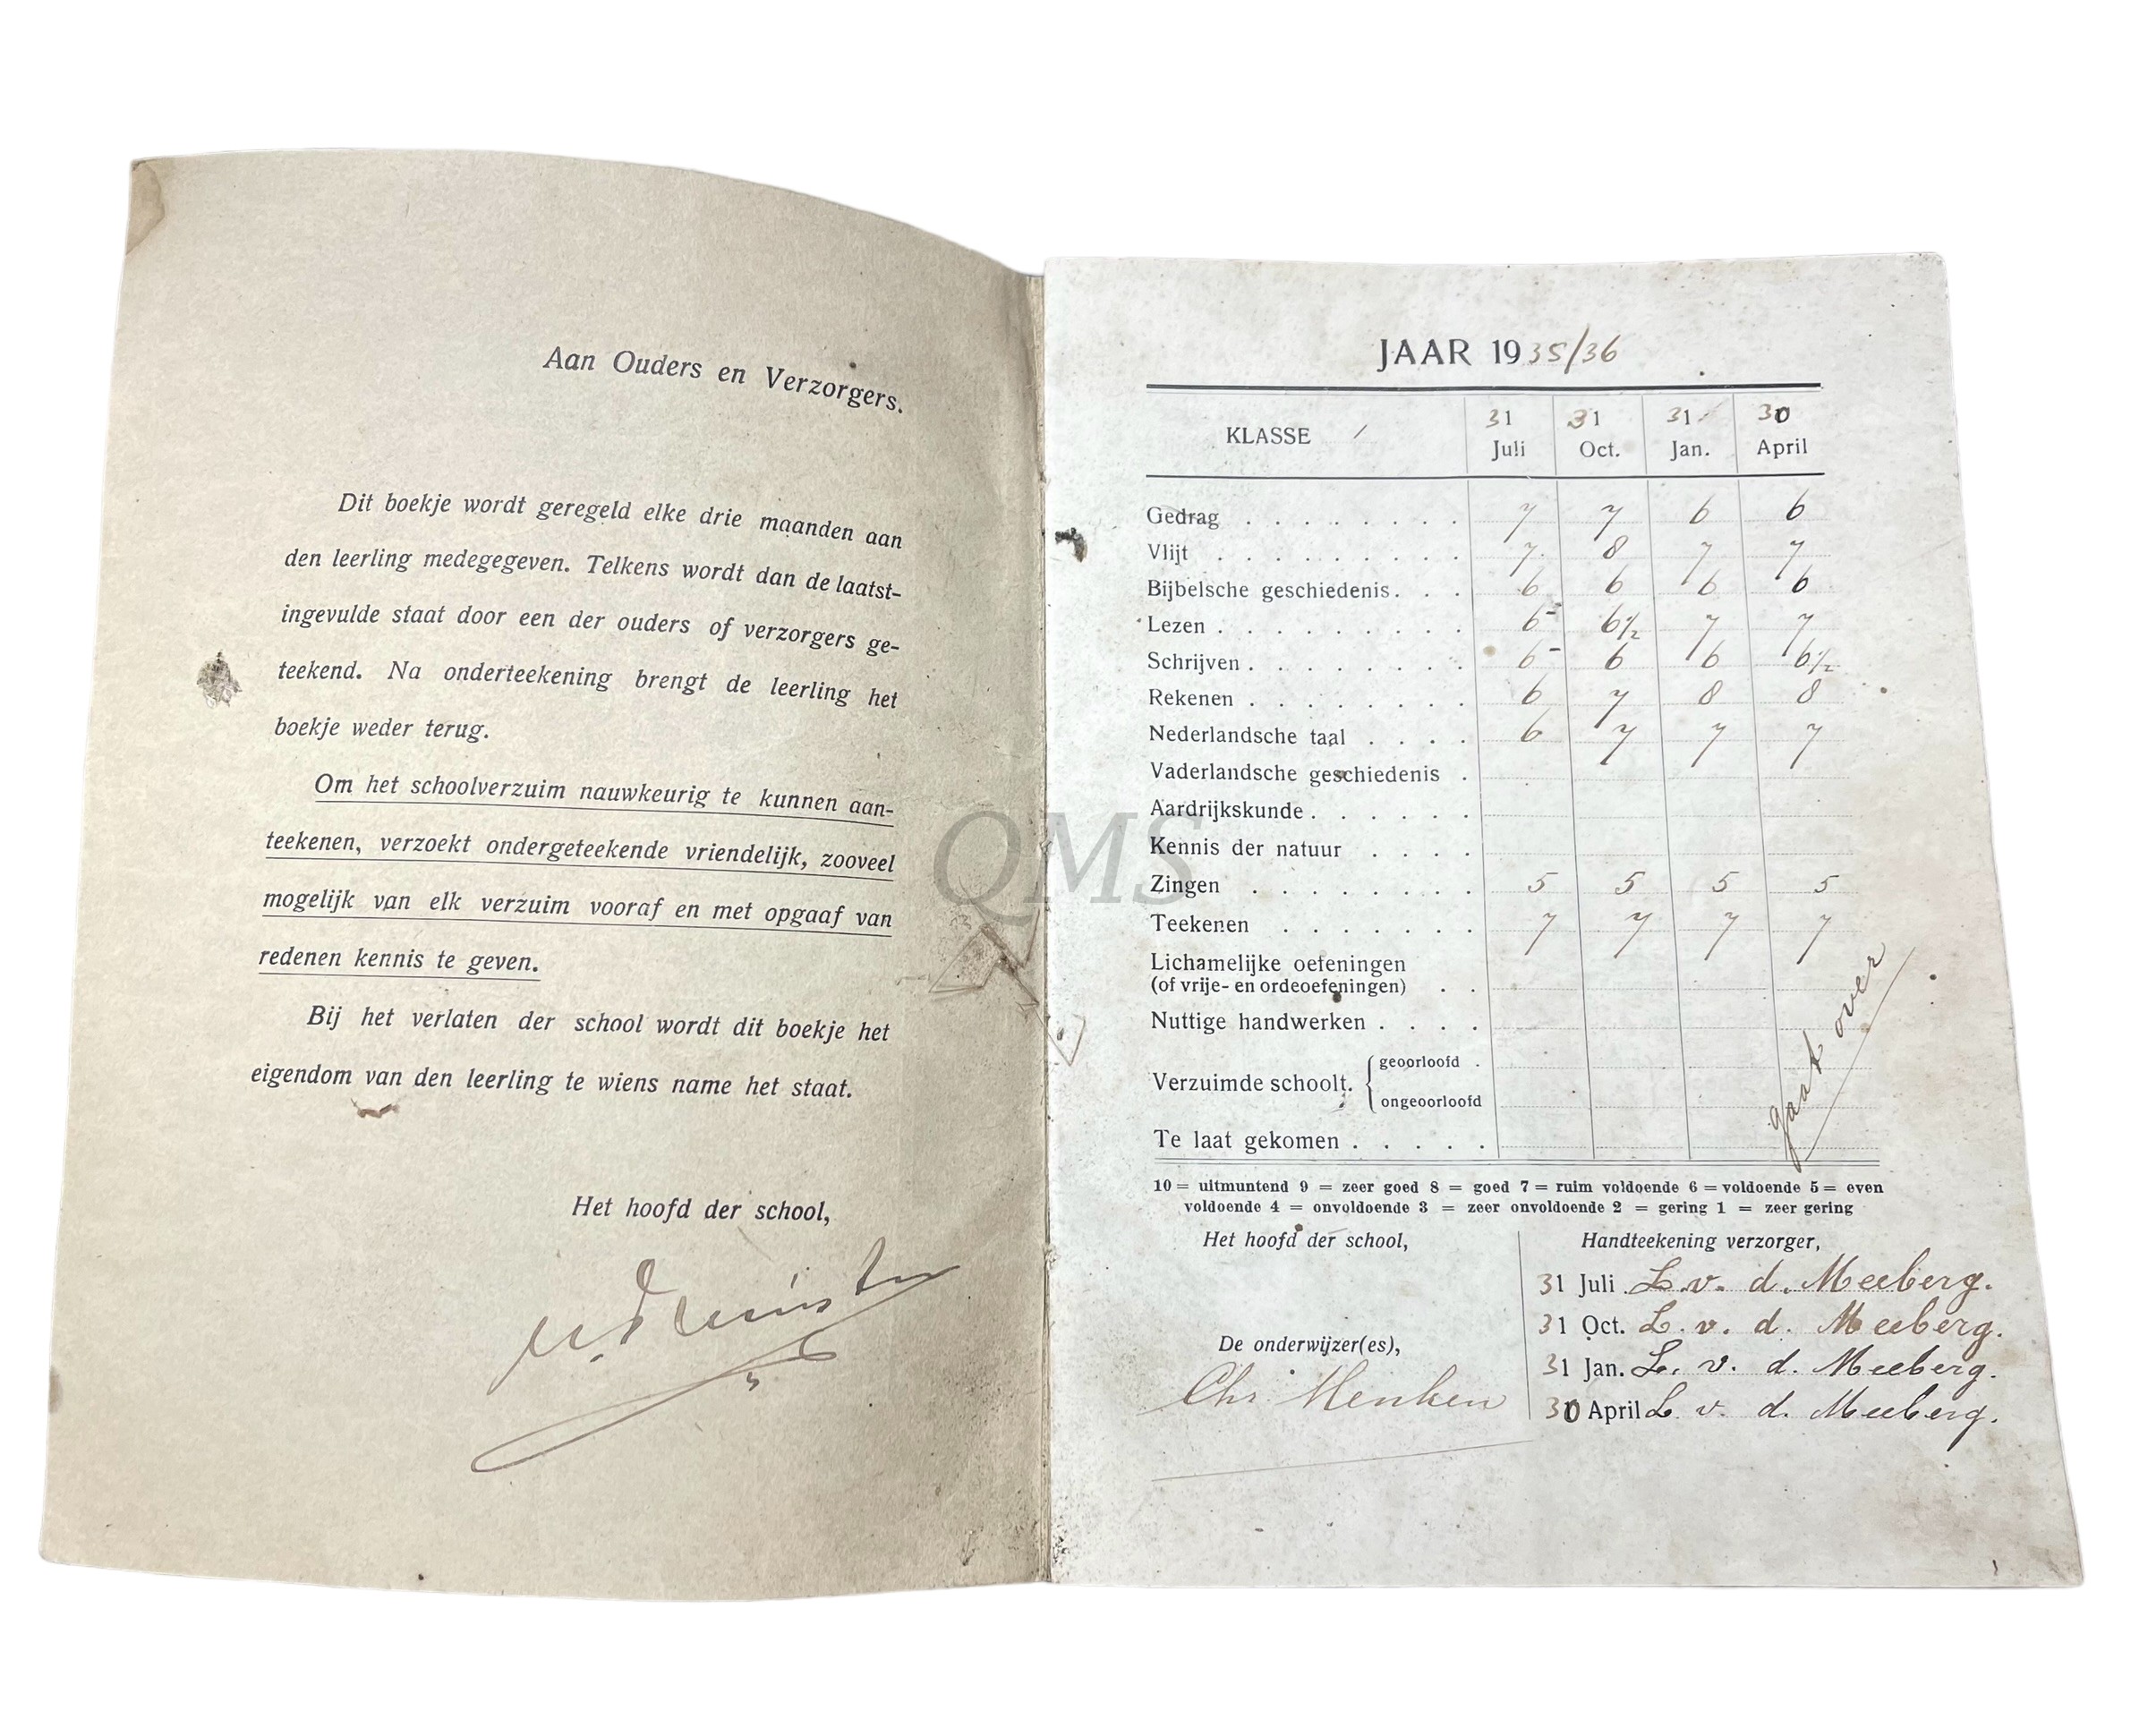 Aan Ouders en Verzorgers.
Dit boekje wordt geregeld elke drie maanden aan
den leerling medegegeven. Telkens wordt dan de laatst-
ingevulde staat door een der ouders of verzorgers ge-
teekend. Na onderteekening brengt de leerling het
boekje weder terug.
Om het schoolverzuim nauwkeurig te kunnen aan-
teekenen, verzoekt ondergeteekende vriendelijk, zooveel
mogelijk van elk verzuim vooraf en met opgaaf van
redenen kennis te geven.
Bij het verlaten der school wordt dit boekje het
eigendom van den leerling te wiens name het staat.
Het hoofd der school,
QMS
JAAR 1935/36
KLASSE 1 31 Juli 31 Oct. 31 Jan. 30 April
Gedrag . . . . . . . . 7 7 6 6
Vlijt . . . . . . . . . 7 8 7 7
Bijbelsche geschiedenis . . . 6 6 6 6
Lezen . . . . . . . . . 6- 6½ 7 7
Schrijven . . . . . . . . 6- 6 6 6½
Rekenen . . . . . . . . 6 7 8 8
Nederlandsche taal . . . . 6 7 7 7
Vaderlandsche geschiedenis .
Aardrijkskunde . . . . . .
Kennis der natuur . . . .
Zingen . . . . . . . . 5 5 5 5
Teekenen . . . . . . . 7 7 7 7
Lichamelijke oefeningen
(of vrije- en ordeoefeningen) . .
Nuttige handwerken . . . .
Verzuimde schoolt. { geoorloofd .
ongeoorloofd
Te laat gekomen . . . . .
gaat over
10 = uitmuntend 9 = zeer goed 8 = goed 7 = ruim voldoende 6 = voldoende 5 = even
voldoende 4 = onvoldoende 3 = zeer onvoldoende 2 = gering 1 = zeer gering
Het hoofd der school,
De onderwijzer(es),
Chr. Menken
Handteekening verzorger,
31 Juli L. v. d. Meeberg.
31 Oct. L. v. d. Meeberg.
31 Jan. L. v. d. Meeberg.
30 April L. v. d. Meeberg.